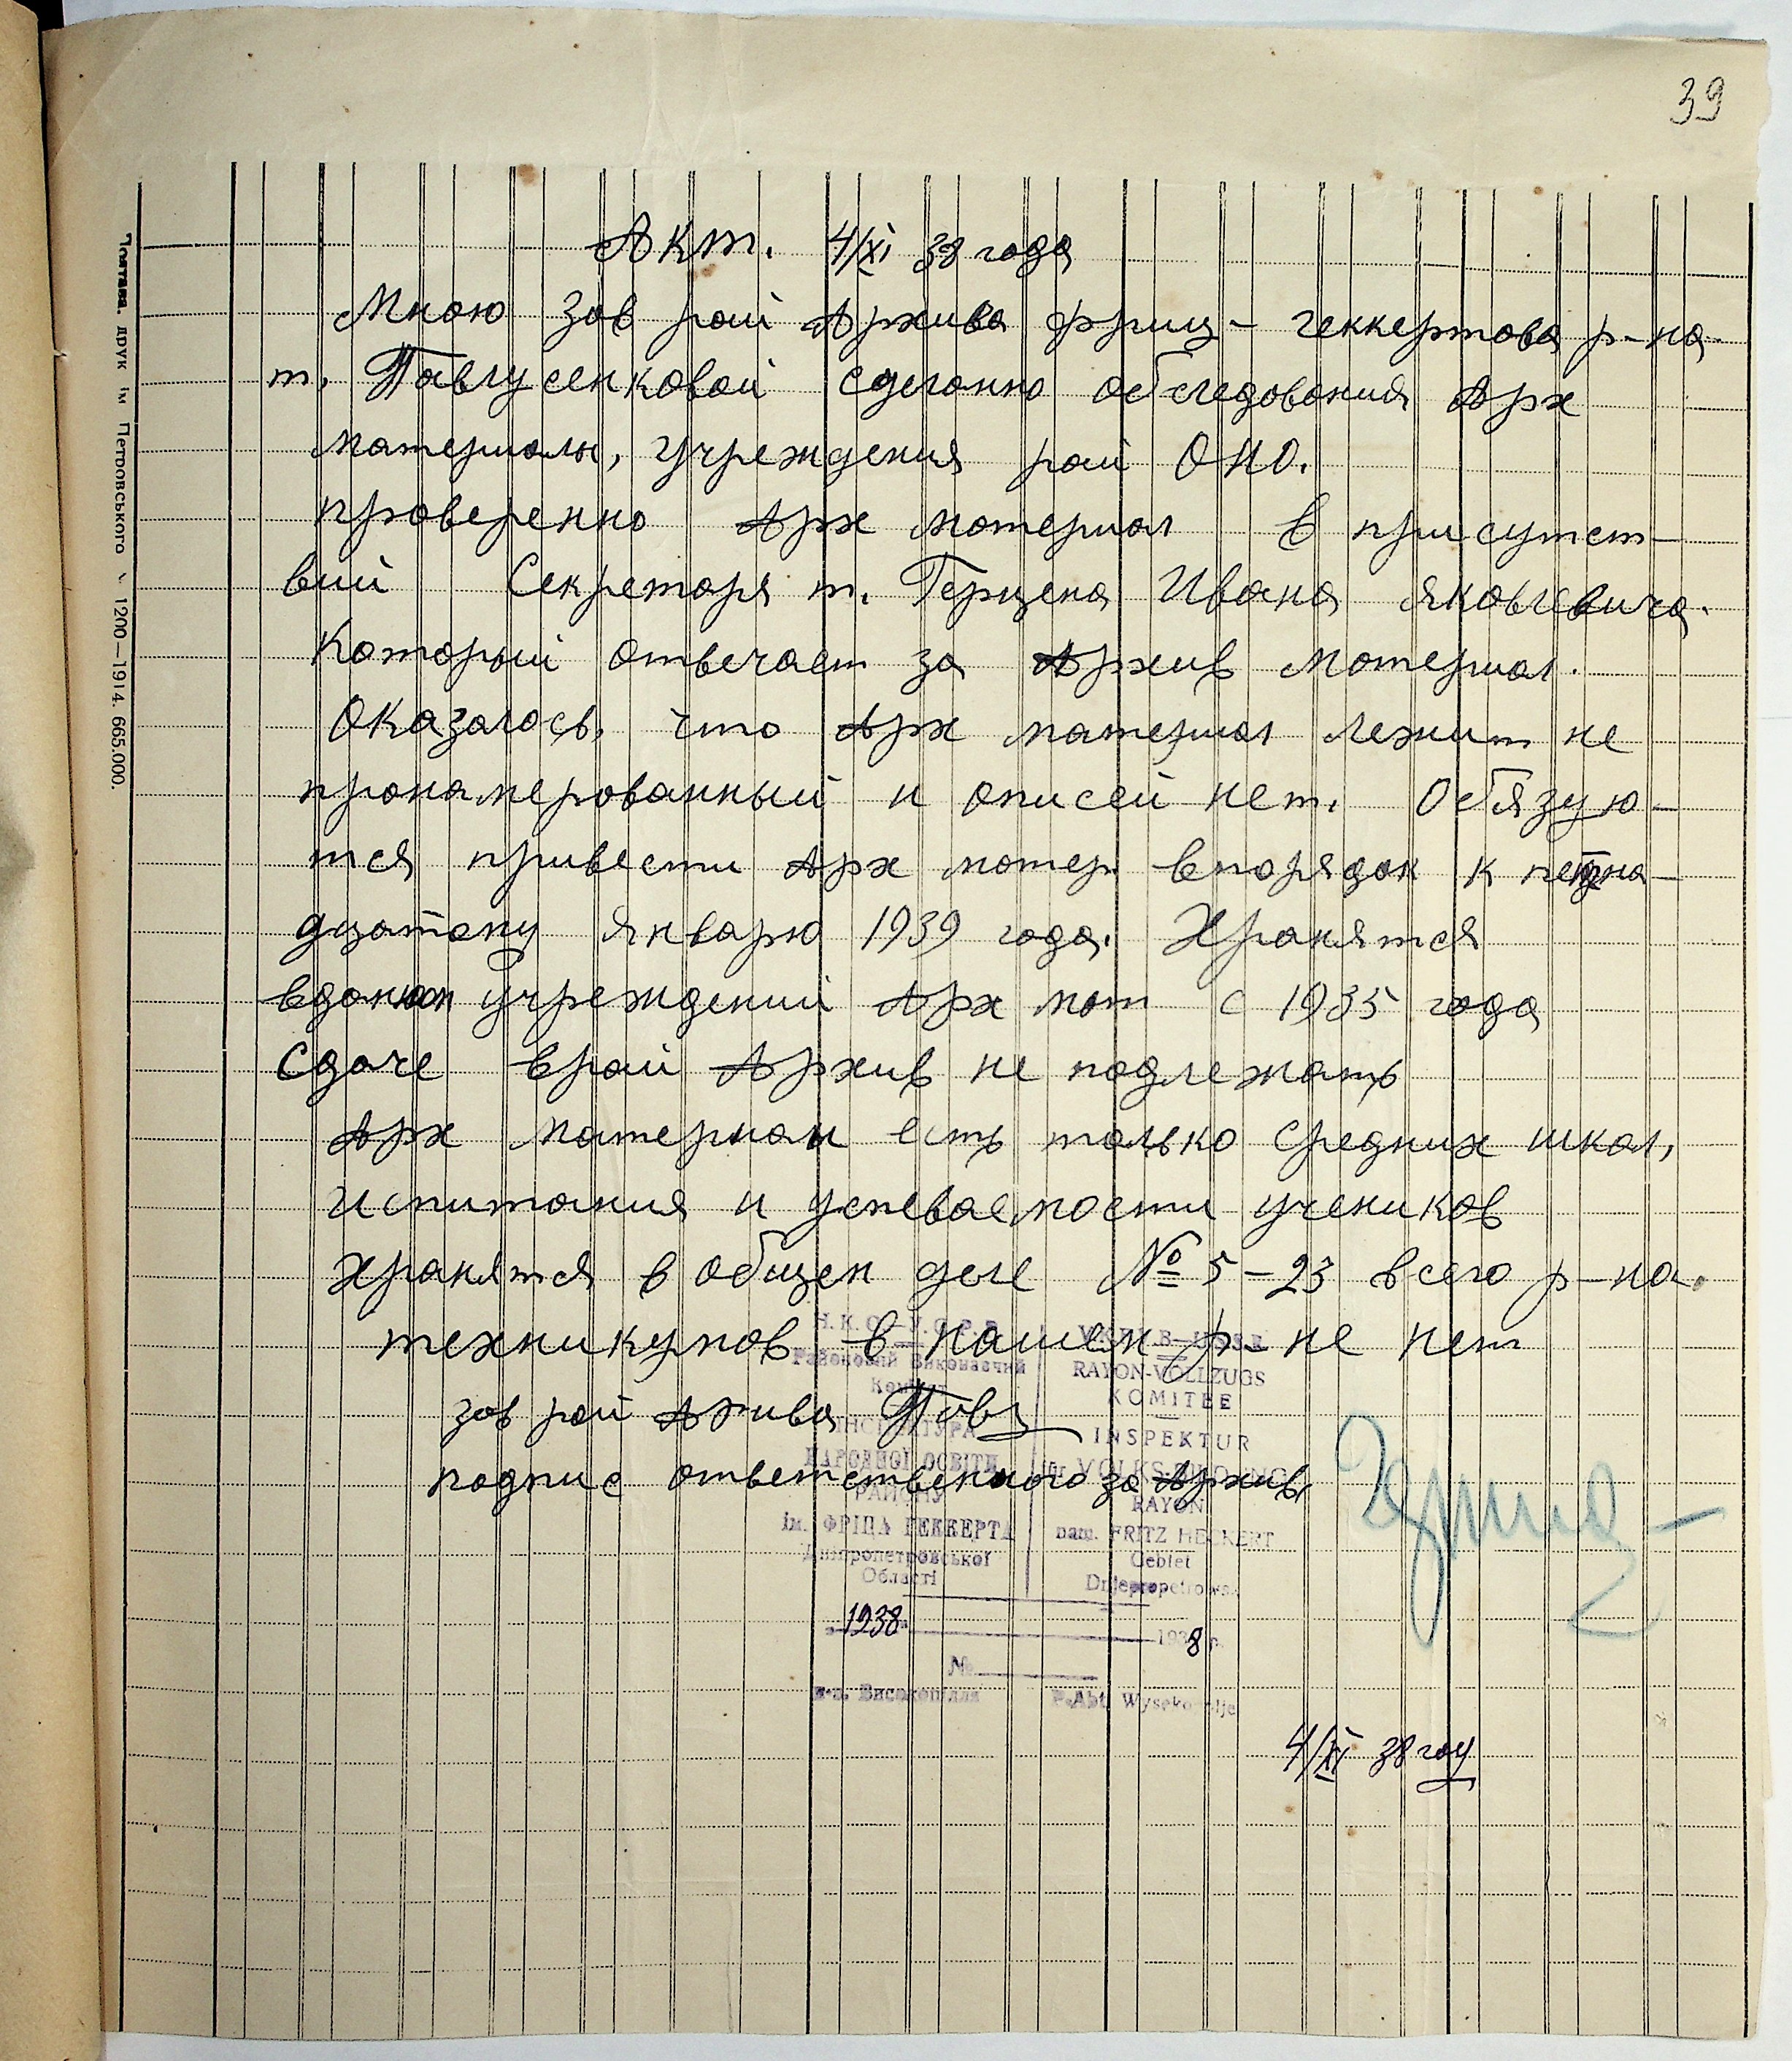 39
Акт. 4/XI 38 года
Мною зав рай Архива фриц-геккертова р-на
т. Павлусенковой сделанно обследования Арх
материалы, учреждения рай ОНО.
проверенно Арх материал в присутст-
вий Секретаря т. Герцена Ивана Яковлевича.
Который отвечает за Архив материал.
Оказалось, что Арх материал лежит не
пронамерованный и описей нет. Обязую-
тся привести Арх матер. впорядок к
дцатому январю 1939 года. Хранятся
Учреждений Арх мат с 1935 года
Сдаче врай Архив не подлежать
Арх материал есть только средних школ,
испитания и успеваемости учеников
хранятся в общем деле № 5-23 всего р-на.
техникумов в нашем р-не нет
зав рай Ахива Павл
подпис ответственного за Архив
Н.К.О.—У.С.Р.Р.
Районовий Виконавчий
Комітет
ІНСПЕКТУРА
НАРОДНОЇ ОСВІТИ
РАЙОНУ
ім. ФРІЦА ГЕККЕРТА
Дніпропетровської
Області
RAYON-VOLLZUGS
KOMITEE
INSPEKTUR
für VOLKSBILDUNG
RAYON
nam. FRITZ HECKERT
Gebiet
Dnjepropetrowsk
1938
1938 р.
№
п-в. Високопілля
P.Abt. Wysokopolje
4/XI 38 год
Полтава. друк. ім. Петровського 1200—1914. 665.000.